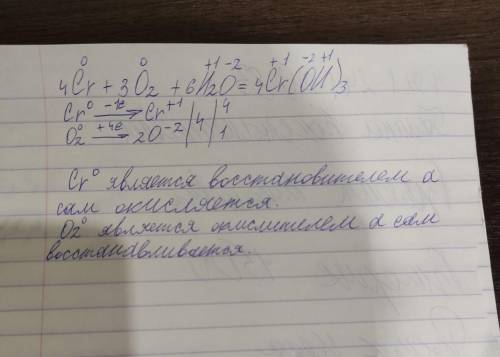 0 0 +1 -2 +1 -2 +1
4Cr + 3O₂ + 6H₂O = 4Cr(OH)₃
Cr⁰ -1e→ Cr⁺¹ | 4 | 4
O₂⁰ +4e→ 2O⁻² | 4 | 1
Cr⁰ является восстановителем а
сам окисляется.
O₂⁰ является окислителем а сам
восстанавливается.